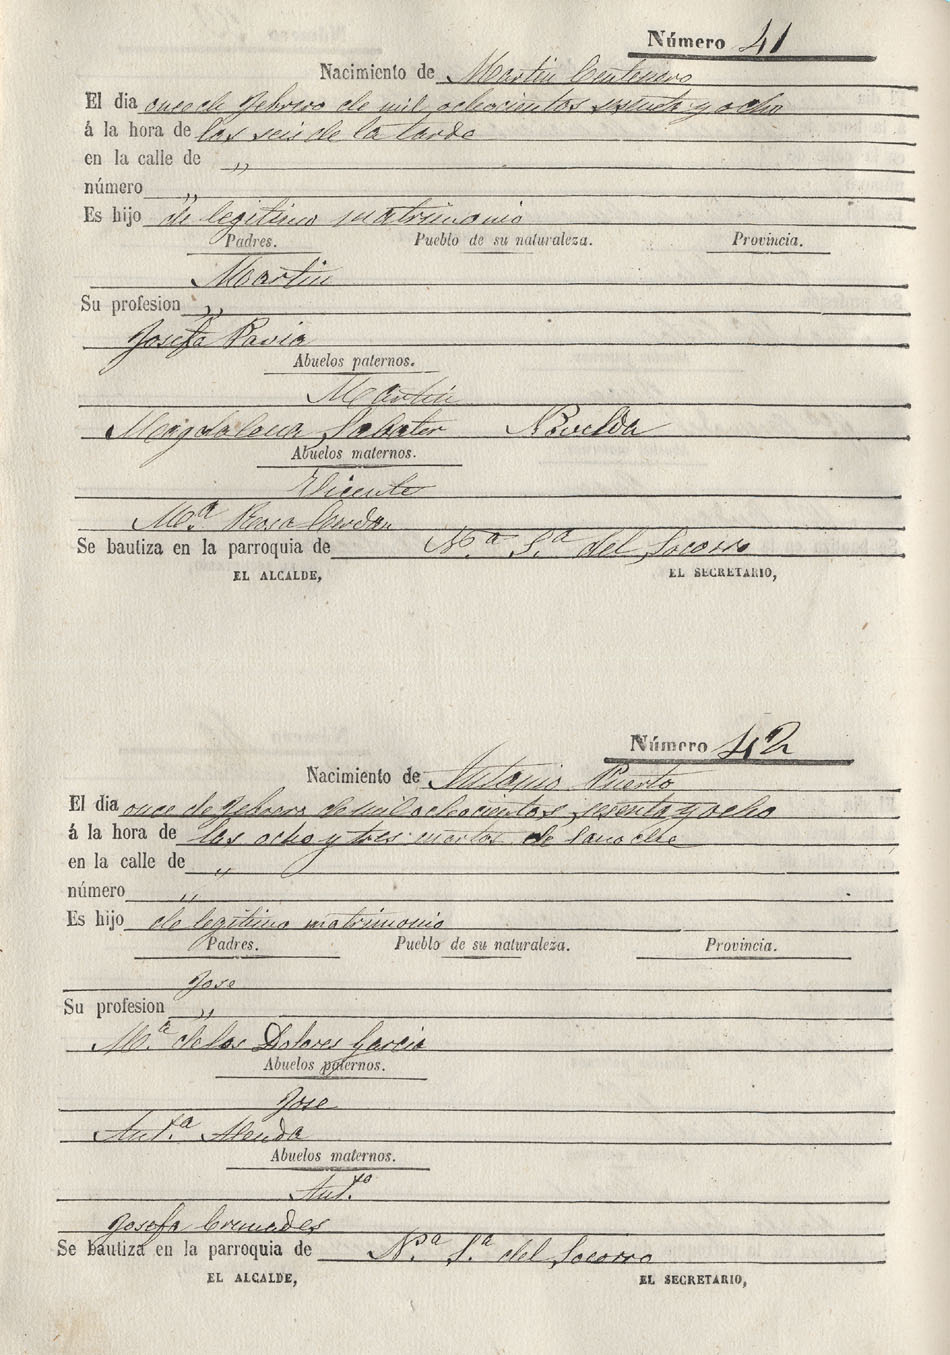 Número 41
Nacimiento de Martin Centenero
El dia once de febrero de mil ochocientos sesenta y ocho
á la hora de las seis de la tarde
en la calle de „
número „
Es hijo de legitimo matrimonio
Padres. Pueblo de su naturaleza. Provincia.
Martin
Su profesion „
Josefa Pavia
Abuelos paternos.
Martin
Magdalena Sabater Novelda
Abuelos maternos.
Vicente
M.ª Rosa
Se bautiza en la parroquia de N.ª S.ª del Socorro
EL ALCALDE, EL SECRETARIO,
Número 42
Nacimiento de Antonio Puerto
El dia once de febrero de mil ochocientos sesenta y ocho
á la hora de las ocho y tres cuartos de la noche
en la calle de „
número „
Es hijo de legitimo matrimonio
Padres. Pueblo de su naturaleza. Provincia.
Jose
Su profesion „
M.ª de los Dolores Garcia
Abuelos paternos.
Jose
Ant.ª Alenda
Abuelos maternos.
Ant.º
Josefa Cremades
Se bautiza en la parroquia de N.ª S.ª del Socorro
EL ALCALDE, EL SECRETARIO,